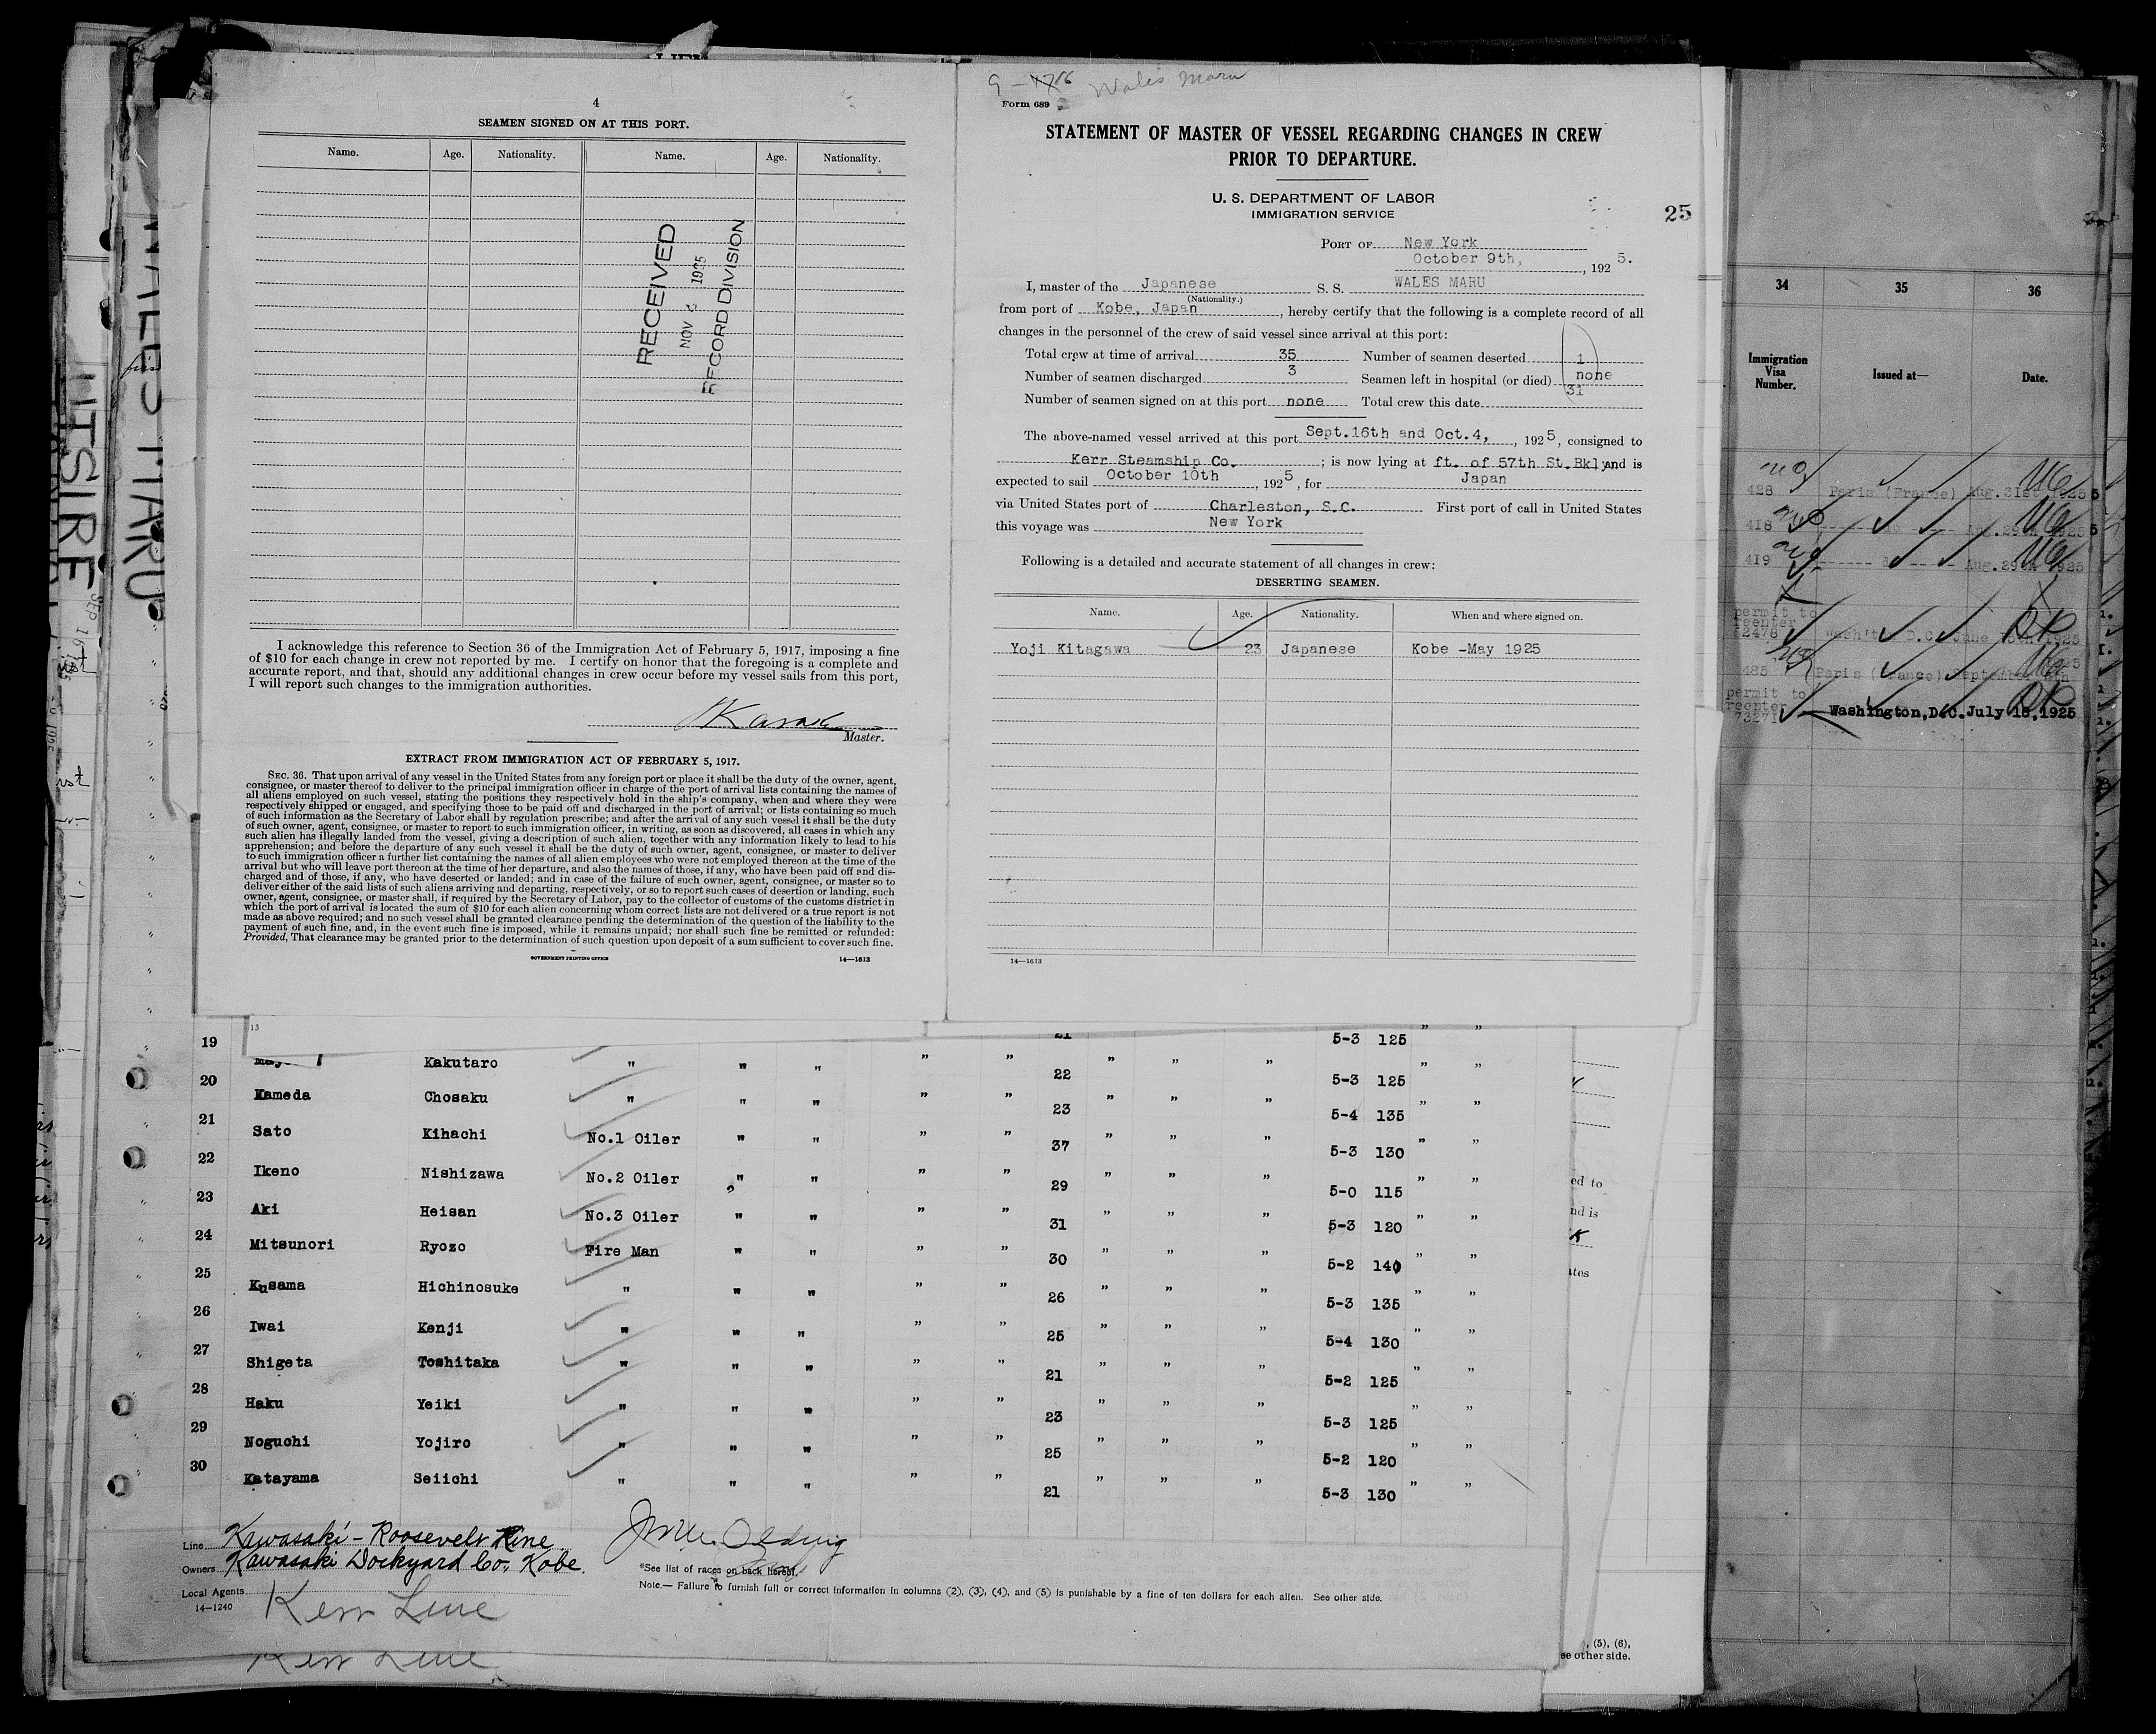 4
SEAMEN SIGNED ON AT THIS PORT.
Name. Age. Nationality. Name. Age. Nationality.
RECEIVED
NOV 1925
RECORD DIVISION
I acknowledge this reference to Section 36 of the Immigration Act of February 5, 1917, imposing a fine
of $10 for each change in crew not reported by me. I certify on honor that the foregoing is a complete and
accurate report, and that, should any additional changes in crew occur before my vessel sails from this port,
I will report such changes to the immigration authorities.
Master.
EXTRACT FROM IMMIGRATION ACT OF FEBRUARY 5, 1917.
SEC. 36. That upon arrival of any vessel in the United States from any foreign port or place it shall be the duty of the owner, agent,
consignee, or master thereof to deliver to the principal immigration officer in charge of the port of arrival lists containing the names of
all aliens employed on such vessel, stating the positions they respectively hold in the ship's company, when and where they were
respectively shipped or engaged, and specifying those to be paid off and discharged in the port of arrival; or lists containing so much
of such information as the Secretary of Labor shall by regulation prescribe; and after the arrival of any such vessel it shall be the duty
of such owner, agent, consignee, or master to report to such immigration officer, in writing, as soon as discovered, all cases in which any
such alien has illegally landed from the vessel, giving a description of such alien, together with any information likely to lead to his
apprehension; and before the departure of any such vessel it shall be the duty of such owner, agent, consignee, or master to deliver
to such immigration officer a further list containing the names of all alien employees who were not employed thereon at the time of the
arrival but who will leave port thereon at the time of her departure, and also the names of those, if any, who have been paid off and dis-
charged and of those, if any, who have deserted or landed; and in case of the failure of such owner, agent, consignee, or master so to
deliver either of the said lists of such aliens arriving and departing, respectively, or so to report such cases of desertion or landing, such
owner, agent, consignee, or master shall, if required by the Secretary of Labor, pay to the collector of customs of the customs district in
which the port of arrival is located the sum of $10 for each alien concerning whom correct lists are not delivered or a true report is not
made as above required; and no such vessel shall be granted clearance pending the determination of the question of the liability to the
payment of such fine, and, in the event such fine is imposed, while it remains unpaid; nor shall such fine be remitted or refunded:
Provided, That clearance may be granted prior to the determination of such question upon deposit of a sum sufficient to cover such fine.
GOVERNMENT PRINTING OFFICE 14—1613
Wales Maru
Form 689
STATEMENT OF MASTER OF VESSEL REGARDING CHANGES IN CREW
PRIOR TO DEPARTURE.
U. S. DEPARTMENT OF LABOR
IMMIGRATION SERVICE
25
PORT OF New York
October 9th, , 192 5.
I, master of the Japanese S. S. WALES MARU
(Nationality.)
from port of Kobe, Japan , hereby certify that the following is a complete record of all
changes in the personnel of the crew of said vessel since arrival at this port:
Total crew at time of arrival 35 Number of seamen deserted 1
Number of seamen discharged 3 Seamen left in hospital (or died) none
Number of seamen signed on at this port none Total crew this date 31
The above-named vessel arrived at this port Sept.16th and Oct.4, , 192 5, consigned to
Kerr Steamship Co. ; is now lying at ft. of 57th St.Bkly and is
expected to sail October 10th , 192 5, for Japan
via United States port of Charleston, S.C. First port of call in United States
this voyage was New York
Following is a detailed and accurate statement of all changes in crew:
DESERTING SEAMEN.
Name. Age. Nationality. When and where signed on.
Yoji Kitagawa 23 Japanese Kobe -May 1925
14—1613
34 35 36
Immigration Visa Number. Issued at— Date.
428 Paris (France) Aug. 31st 1925
418
419 Aug. 29th 1925
permit to
reenter
Paris (France)
permit to
reenter
73271 Washington, D.C. July 15, 1925
WALES MARU
13
19 Kakutaro " " " " " 21 " " " 5-3 125 " "
20 Kameda Chosaku " " " " " 22 " " " 5-3 125 " "
21 Sato Kihachi No.1 Oiler " " " " 23 " " " 5-4 135 " "
22 Ikeno Nishizawa No.2 Oiler " " " " 37 " " " 5-3 130 " "
23 Aki Heisan No.3 Oiler " " " " 29 " " " 5-0 115 " "
24 Mitsunori Ryozo Fire Man " " " " 31 " " " 5-3 120 " "
25 Kusama Hichinosuke " " " " " 30 " " " 5-2 140 " "
26 Iwai Kenji " " " " " 26 " " " 5-3 135 " "
27 Shigeta Toshitaka " " " " " 25 " " " 5-4 130 " "
28 Haku Yeiki " " " " " 21 " " " 5-2 125 " "
29 Noguchi Yojiro " " " " " 23 " " " 5-3 125 " "
30 Katayama Seiichi " " " " " 25 " " " 5-2 120 " "
21 5-3 130
Line Kawasaki-Roosevelt Line
Owners Kawasaki Dockyard Co. Kobe.
Local Agents Kerr Line
14-1240
*See list of races on back hereof.
Note.— Failure to furnish full or correct information in columns (2), (3), (4), and (5) is punishable by a fine of ten dollars for each alien. See other side.
Kerr Line
, (5), (6),
ee other side.